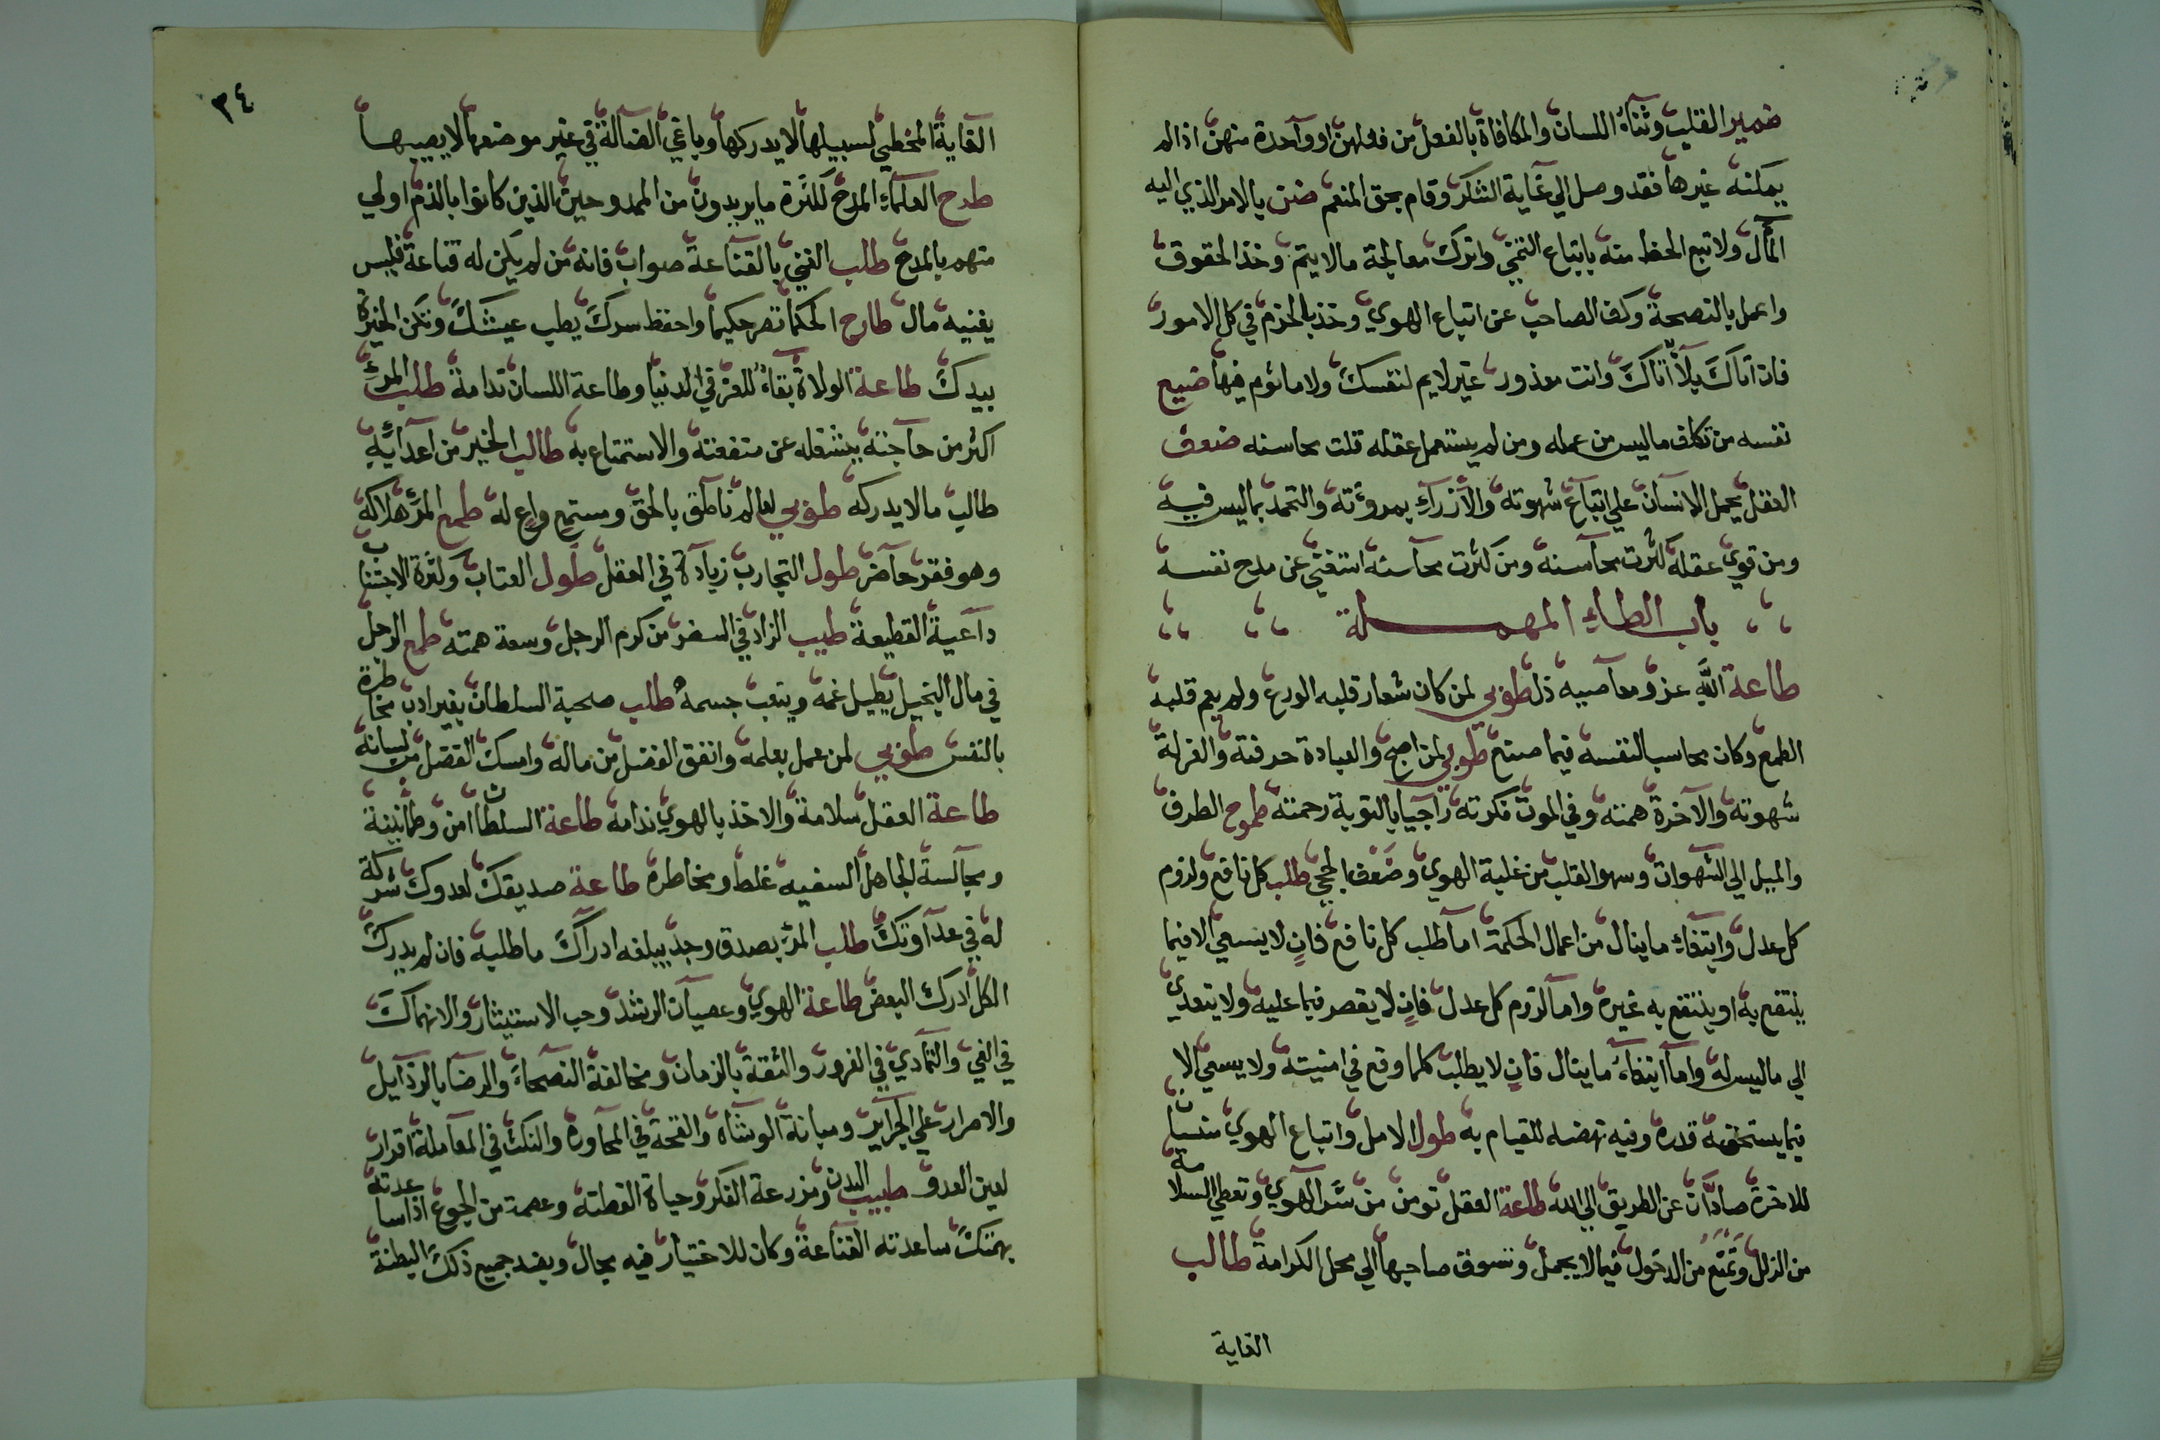 ضمير القلب وثناء اللسان والمكافاة بالفعل من فعلهن او واحدة منهن اذا لم
يمكنه غيرها فقد وصل الي غاية الشكر وقام بحق المنعم ضن بالامر الذي اليه
المآل ولا تبع الحظ منه باتباع التمني واترك معالجة مالا يتم وخذ الحقوق
واعمل بالنصحة وكف الصاحب عن اتباع الهوي وخذ بالحزم في كل الامور
فان اتاك بلا اتاك وانت معذور غير لايم لنفسك ولا ماثوم فيها ضيع
نفسه من تكلف ماليس من عمله ومن لم يستعمل عقله قلت محاسنه ضعف
العقل يحمل الانسان علي اتباع شهوته والازراء بمروءته والتحمد بماليس فيه
ومن قوي عقله كثرت محاسنه ومن كثرت محاسنه استغني عن مدح نفسه
باب الطاء المهملة
طاعة الله عز ومعاصيه ذل طوبي لمن كان شعار قلبه الورع ولم يعم قلبه
الطمع وكان محاسبا لنفسه فيما صنع طوبي لمن اصبح والعبادة حرفته والعزلة
شهوته والآخرة همته وفي الموت فكرته راجيا بالتوبة رحمته طموح الطرف
والميل الي الشهوات وسهو القلب من غلبة الهوي وضعف الحجي طلب كل نافع ولزوم
كل عدل وابتغاء ماينال من اعمال الحكمة اما طلب كل نافع فان لا يسعي الا فيما
ينتفع به او ينتفع به غيره واما لزوم كل عدل فان لا يقصر فيما عليه ولا يتعدي
الي ماليس له واما ابتغاء ماينال فان لا يطلب كلما وقع في امنيته ولا يسعي الا
فيما يستحقه قدره وفيه نهضه للقيام به طول الامل واتباع الهوي منسيان
للاخرة صادان عن الطريق الي الله طاعة العقل تومن من شر الهوي وتعطي السلامة
من الزلل وتمنع من الدخول فيما لا يجمل وتسوق صاحبها الي محل الكرامة طالب
الغاية
٣٤
الغاية المخطي لسبيلها لا يدركها وباغي الضالة في غير موضعها لا يصيبها
طرح العلماء المدح لكثرة ما يريدون من الممدوحين الذين كانوا بالذم اولي
منهم بالمدح طلب الغني بالقناعة صواب فانه من لم يكن له قناعة فليس
يغنيه مال طارح الحكما تصر حكيما واحفظ سرك يطب عيشك وتكن الخيرة
بيدك طاعة الولاة بقاء للعز في الدنيا وطاعة اللسان ندامة طلب المرء
اكثر من حاجته يشغله عن منفعته والاستمتاع به طالب الخير من اعدائه
طالب مالا يدركه طوبي لعالم ناطق بالحق ومستمع واع له طمع المرء هلاكه
وهو فقر حاضر طول التجارب زيادة في العقل طول العتاب وكثرة الاجتناب
داعية القطيعة طيب الزاد في السفر من كرم الرجل وسعة همته طمع الرجل
في مال البخيل يطيل غمه ويتعب جسمه طلب صحبة السلطان بغير ادب مخاطرة
بالنفس طوبي لمن عمل بعلمه وانفق الفضل من ماله وامسك الفضل من لسانه
طاعة العقل سلامة والاخذ بالهوي ندامة طاعة السلطان امن وطمانينة
ومجالسة الجاهل السفيه غلط ومخاطرة طاعة صديقك لعدوك شركة
له في عداوتك طلب المرء بصدق وجد يبلغه ادراك ما طلبه فان لم يدرك
الكل ادرك البعض طاعة الهوي وعصيان الرشد وحب الاستيثار والانهماك
في الغي والتمادي في الغرور والثقة بالزمان ومخالفة النصحاء والرضا بالرذايل
والاصرار علي الجراير ومباتة الوشاه والقحة في المحاورة والنكث في المعاملة اقرار
لعين العدو طبيب البدن ومزرعة الفكر وحياة الفطنة وعصمة من الجوع اذا ساعدته
بهمتك ساعدته القناعة وكان للاختيار فيه مجال ويفسد جميع ذلك البطنة